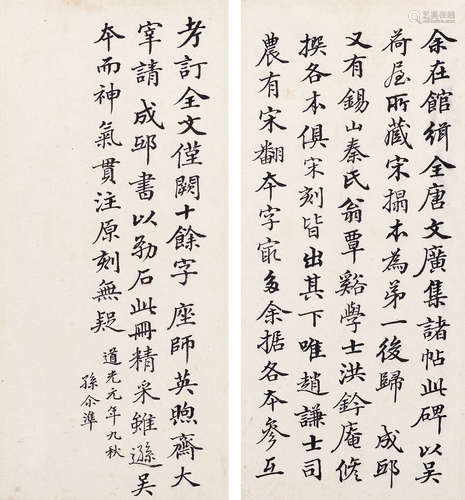 余在館緝全唐文廣集諸帖此碑以吳
荷屋所藏宋搨本為第一後歸 成邸
又有錫山秦氏翁覃谿學士洪鈐庵修
撰各本俱宋刻皆出其下唯趙謙士司
農有宋翻本字㝡多余据各本參互
考訂全文僅闕十餘字 座師英煦齋大
宰請 成邸書以勒石此冊精采雖遜吳
本而神氣貫注原刻無疑
道光元年九秋
孫尒準